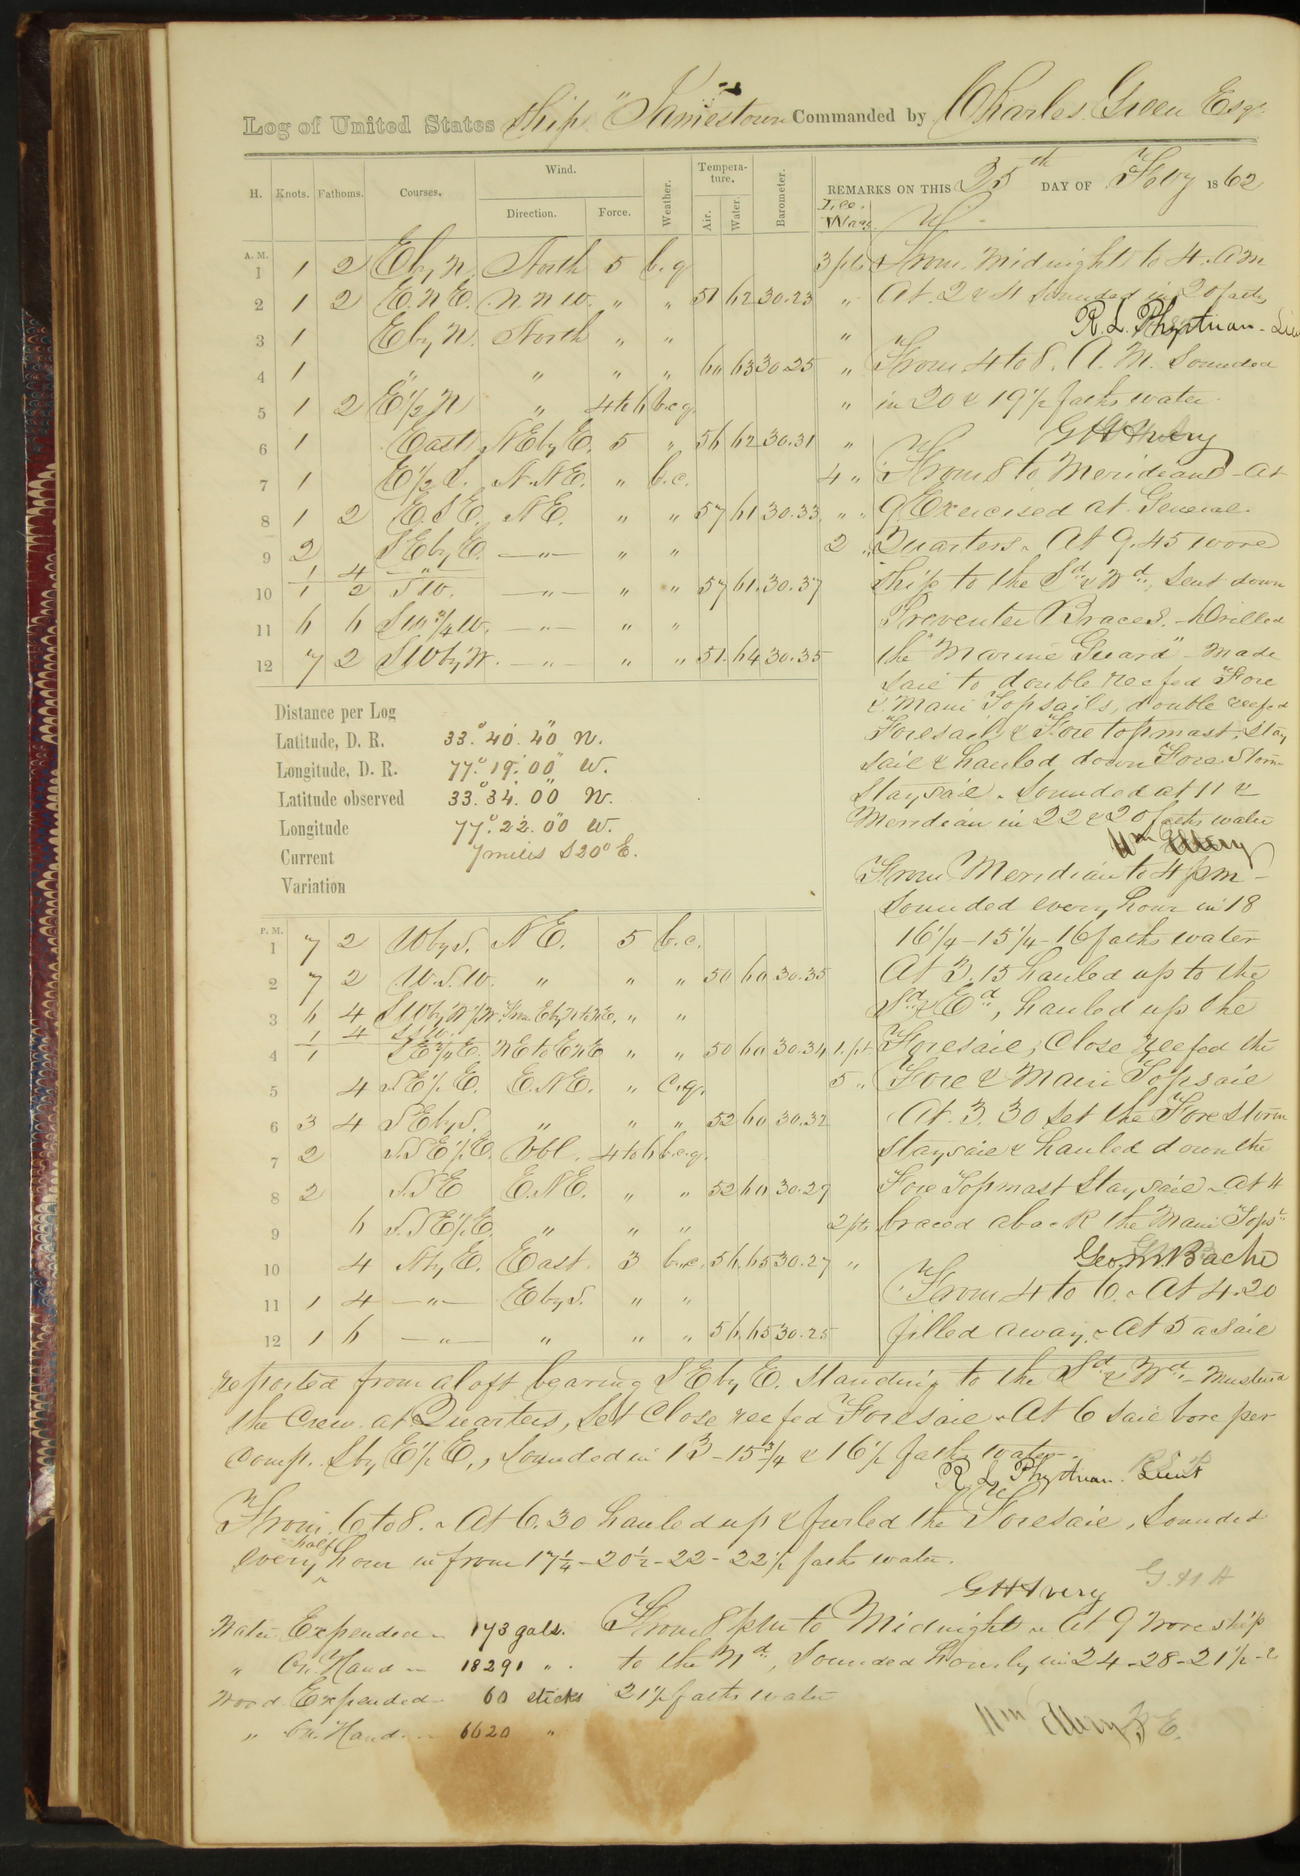 Log of United States Ship "Jamestown" Commanded by Charles Green Esqr
H. Knots. Fathoms. Courses. Wind. Direction. Force. Weather. Temperature. Air. Water. Barometer. REMARKS ON THIS 25th DAY OF Feby 1862
Lee Way
A. M.
1 1 2 E by N. North 5 b.q. 3 pts From Midnight to 4. A M
2 1 2 E.N.E. N N W. " " 51 62 30.23 " At 2 & 4 sounded in 20 faths
R. L. Phythian - Lieut
3 1 E by N. North " " "
4 1 " " " " 60 63 30.25 " From 4 to 8. A. M. Sounded
5 1 2 E 1/2 N " 4 to 6 b.c.q. " in 20 & 19 1/2 faths water.
6 1 East NE by E. 5 " 56 62 30.31 "
7 1 E 1/2 S. N.NE. " b.c. 4 " From 8 to Meridian - At
8 1 2 E.S.E. NE. " " 57 61 30.33 " " 9 Exercised at General
9 2 SE by E. — " — " " 2 " Quarters. At 9.45 wore
10 1 4 — " —
1 2 SW. — " — " " 57 61 30.37 ship to the Sd & Wd, Sent down
11 6 6 SW 3/4 W. — " — " " Preventer Braces. - Drilled
12 7 2 SW by W. — " — " " 51 64 30.35 the "Marine Guard" - Made
sail to double reefed Fore
& Main Topsails, double reefed
Foresail & Fore topmast Stay
sail & hauled down Fore Storm
Staysail. Sounded at 11 &
Meridian in 22 & 20 faths water
Wm Ellery
Distance per Log
Latitude, D. R. 33° 40' 40" N.
Longitude, D. R. 77° 19' 00" W.
Latitude observed 33° 34' 00" N.
Longitude 77° 22' 00" W.
Current 7 miles S 20° E.
Variation
From Meridian to 4 pm -
Sounded every hour in 18
P. M.
1 7 2 W by S. NE. 5 b.c. 16 1/4 - 15 1/4 - 16 faths water
2 7 2 W.S.W. " " " 50 60 30.35 At 3.15 hauled up to the
3 6 4 SW by W 1/2 W. From E by N to NE. " " Sd & Ed, hauled up the
4 1 4 S.S.W.
1 SE 3/4 E. NE to ENE " " 50 60 30.34 1 pt Foresail, Close reefed the
5 4 SE 1/2 E. E.NE. " c.q. 5 " Fore & Main Topsail
6 3 4 SE by S. " " " 52 60 30.32 At 3.30 set the Fore storm
7 2 S.SE 1/2 E. Vbl. 4 to 6 b.c.q. staysail & hauled down the
8 2 S.SE E.NE. " " 52 60 30.29 Fore Topmast Staysail. At 4
9 6 S.SE 1/2 E. " " " 2 pts braced aback the Main Topsl
Geo. M Bache
10 4 N by E. East. 3 b.c. 56 65 30.27 "
11 1 4 — " — E by S. " " From 4 to 6. At 4.20
12 1 6 — " — " " " 56 65 30.25 filled away. At 5 a sail
reported from aloft bearing SE by E. standing to the Sd & Wd - Mustered
the Crew at Quarters, Set Close reefed Foresail. At 6 sail bore per
comp. S by E 1/2 E., Sounded in 13 - 15 3/4 & 16 1/2 faths water.
R L Phythian. Lieut
From 6 to 8. At 6.30 hauled up & furled the Foresail, Sounded
every half hour in from 17 1/4 - 20 1/2 - 22 - 22 1/2 faths water.
Water Expended 173 gals. From 8 pm to Midnight. At 9 Wore ship
" On Hand 18291 " to the Nd, Sounded hourly in 24 - 28 - 21 1/2 - &
Wood Expended 60 sticks 21 1/2 faths water
" On Hand 6620 "
Wm Ellery